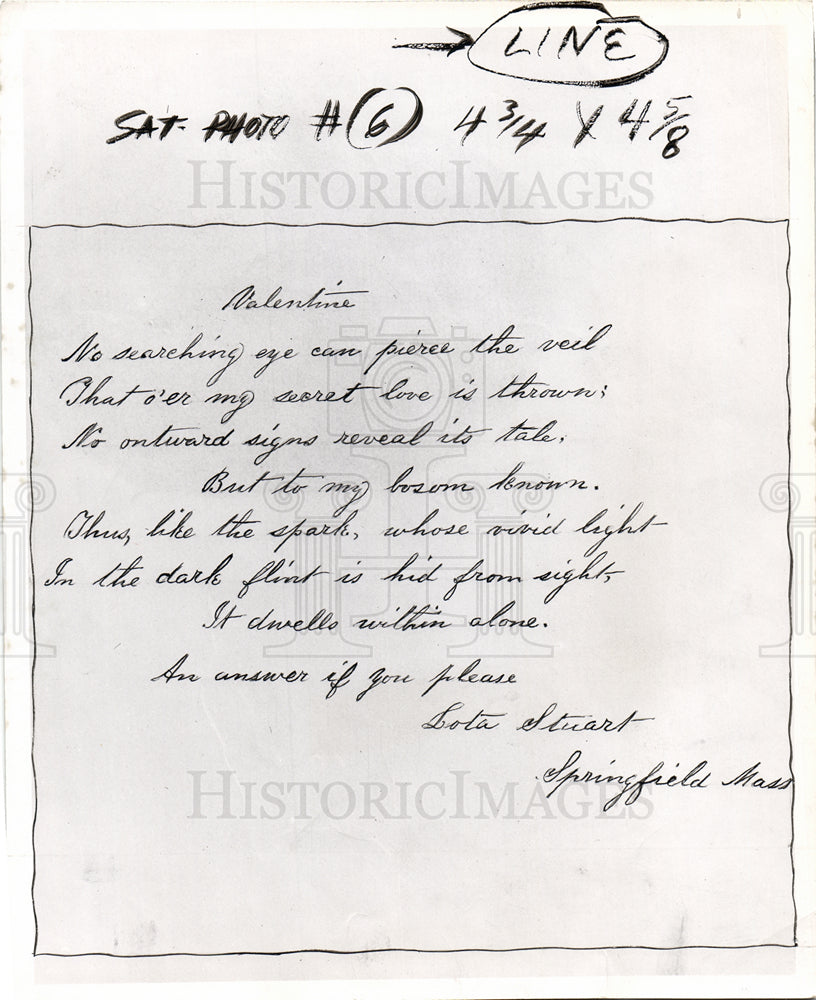 → LINE
SAT. PHOTO # 6 4 3/4 X 4 5/8
HISTORICIMAGES
Valentine
No searching eye can pierce the veil
That o'er my secret love is thrown;
No outward signs reveal its tale,
But to my bosom known.
Thus, like the spark, whose vivid light
In the dark flint is hid from sight,
It dwells within alone.
An answer if you please
Lota Stuart
Springfield Mass
HISTORICIMAGES